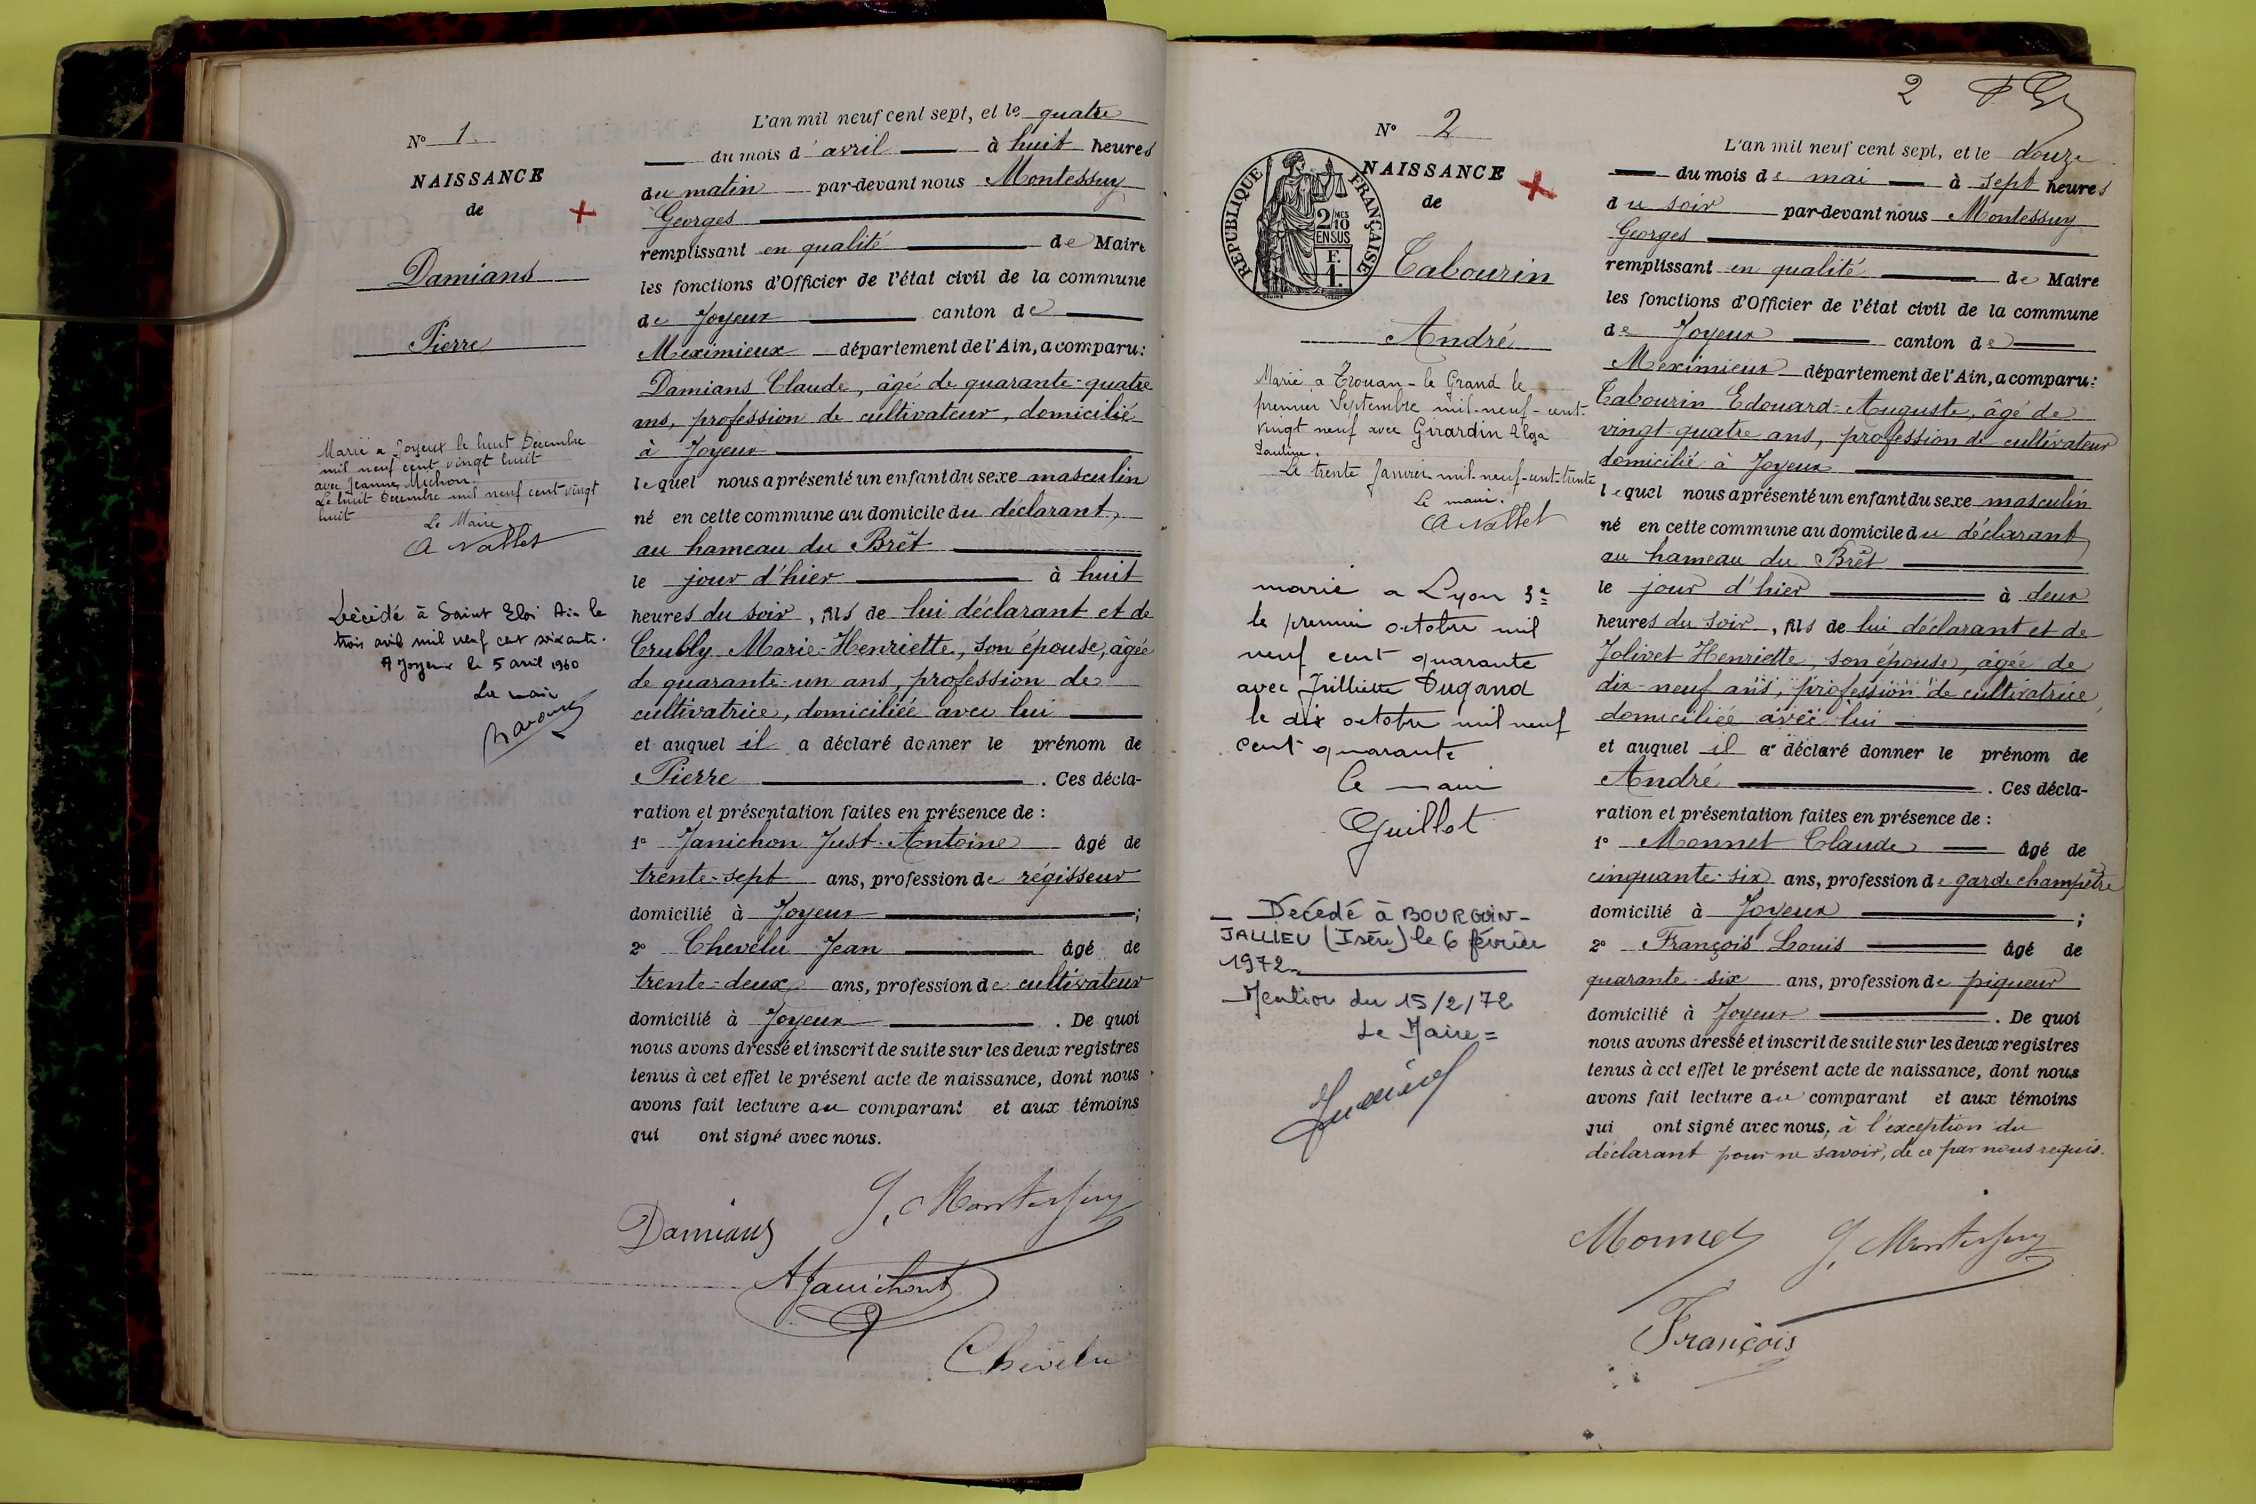 N° 1.
NAISSANCE
de
Damians
Pierre
Marié a Joyeux le huit Décembre
mil neuf cent vingt huit
avec Jeanne Michon.
Le huit Décembre mil neuf cent vingt
huit
Le Maire
A Nallet
Décédé à Saint Eloi Ain le
trois avril mil neuf cent soixante.
A Joyeux le 5 avril 1960
Le maire
L'an mil neuf cent sept, et le quatre
du mois d'avril à huit heures
du matin par-devant nous Montessuy
Georges
remplissant en qualité de Maire
les fonctions d'Officier de l'état civil de la commune
de Joyeux canton de
Meximieux département de l'Ain, a comparu:
Damians Claude, âgé de quarante-quatre
ans, profession de cultivateur, domicilié
à Joyeux
lequel nous a présenté un enfant du sexe masculin
né en cette commune au domicile du déclarant,
au hameau du Brêt
le jour d'hier à huit
heures du soir, fils de lui déclarant et de
Crubly Marie-Henriette, son épouse, âgée
de quarante-un ans, profession de
cultivatrice, domiciliée avec lui
et auquel il a déclaré donner le prénom de
Pierre. Ces décla-
ration et présentation faites en présence de :
1° Janichon Just-Antoine âgé de
trente-sept ans, profession de régisseur
domicilié à Joyeux ;
2° Chevelu Jean âgé de
trente-deux ans, profession de cultivateur
domicilié à Joyeux. De quoi
nous avons dressé et inscrit de suite sur les deux registres
tenus à cet effet le présent acte de naissance, dont nous
avons fait lecture au comparant et aux témoins
qui ont signé avec nous.
Damians G. Montessuy
A Janichon
Chevelu
2
N° 2
NAISSANCE
de
RÉPUBLIQUE FRANÇAISE
2/10 MES
EN SUS
F.
1.
Tabourin
André
Marié a Trouan-le Grand le
premier Septembre mil-neuf-cent-
vingt neuf avec Girardin Alga
Pauline.
Le trente Janvier mil-neuf-cent-trente
Le maire.
A Nallet
marié a Lyon 3e
le premier octobre mil
neuf cent quarante
avec Juliette Dugand
le dix octobre mil neuf
cent quarante
Le maire
Guillot
Décédé à BOURGOIN-
JALLIEU (Isère) le 6 février
1972.
Mention du 15/2/72
Le Maire =
L'an mil neuf cent sept, et le douze
du mois de mai à sept heures
du soir par-devant nous Montessuy
Georges
remplissant en qualité de Maire
les fonctions d'Officier de l'état civil de la commune
de Joyeux canton de
Meximieux département de l'Ain, a comparu:
Tabourin Edouard-Auguste, âgé de
vingt-quatre ans, profession de cultivateur
domicilié à Joyeux
lequel nous a présenté un enfant du sexe masculin
né en cette commune au domicile du déclarant,
au hameau du Brêt
le jour d'hier à deux
heures du soir, fils de lui déclarant et de
Jolivet Henriette, son épouse, âgée de
dix-neuf ans, profession de cultivatrice,
domiciliée avec lui
et auquel il a déclaré donner le prénom de
André. Ces décla-
ration et présentation faites en présence de :
1° Monnet Claude âgé de
cinquante-six ans, profession de garde champêtre
domicilié à Joyeux ;
2° François Louis âgé de
quarante-six ans, profession de piqueur
domicilié à Joyeux. De quoi
nous avons dressé et inscrit de suite sur les deux registres
tenus à cet effet le présent acte de naissance, dont nous
avons fait lecture au comparant et aux témoins
qui ont signé avec nous, à l'exception du
déclarant pour ne savoir, de ce par nous requis.
Monnet G. Montessuy
François